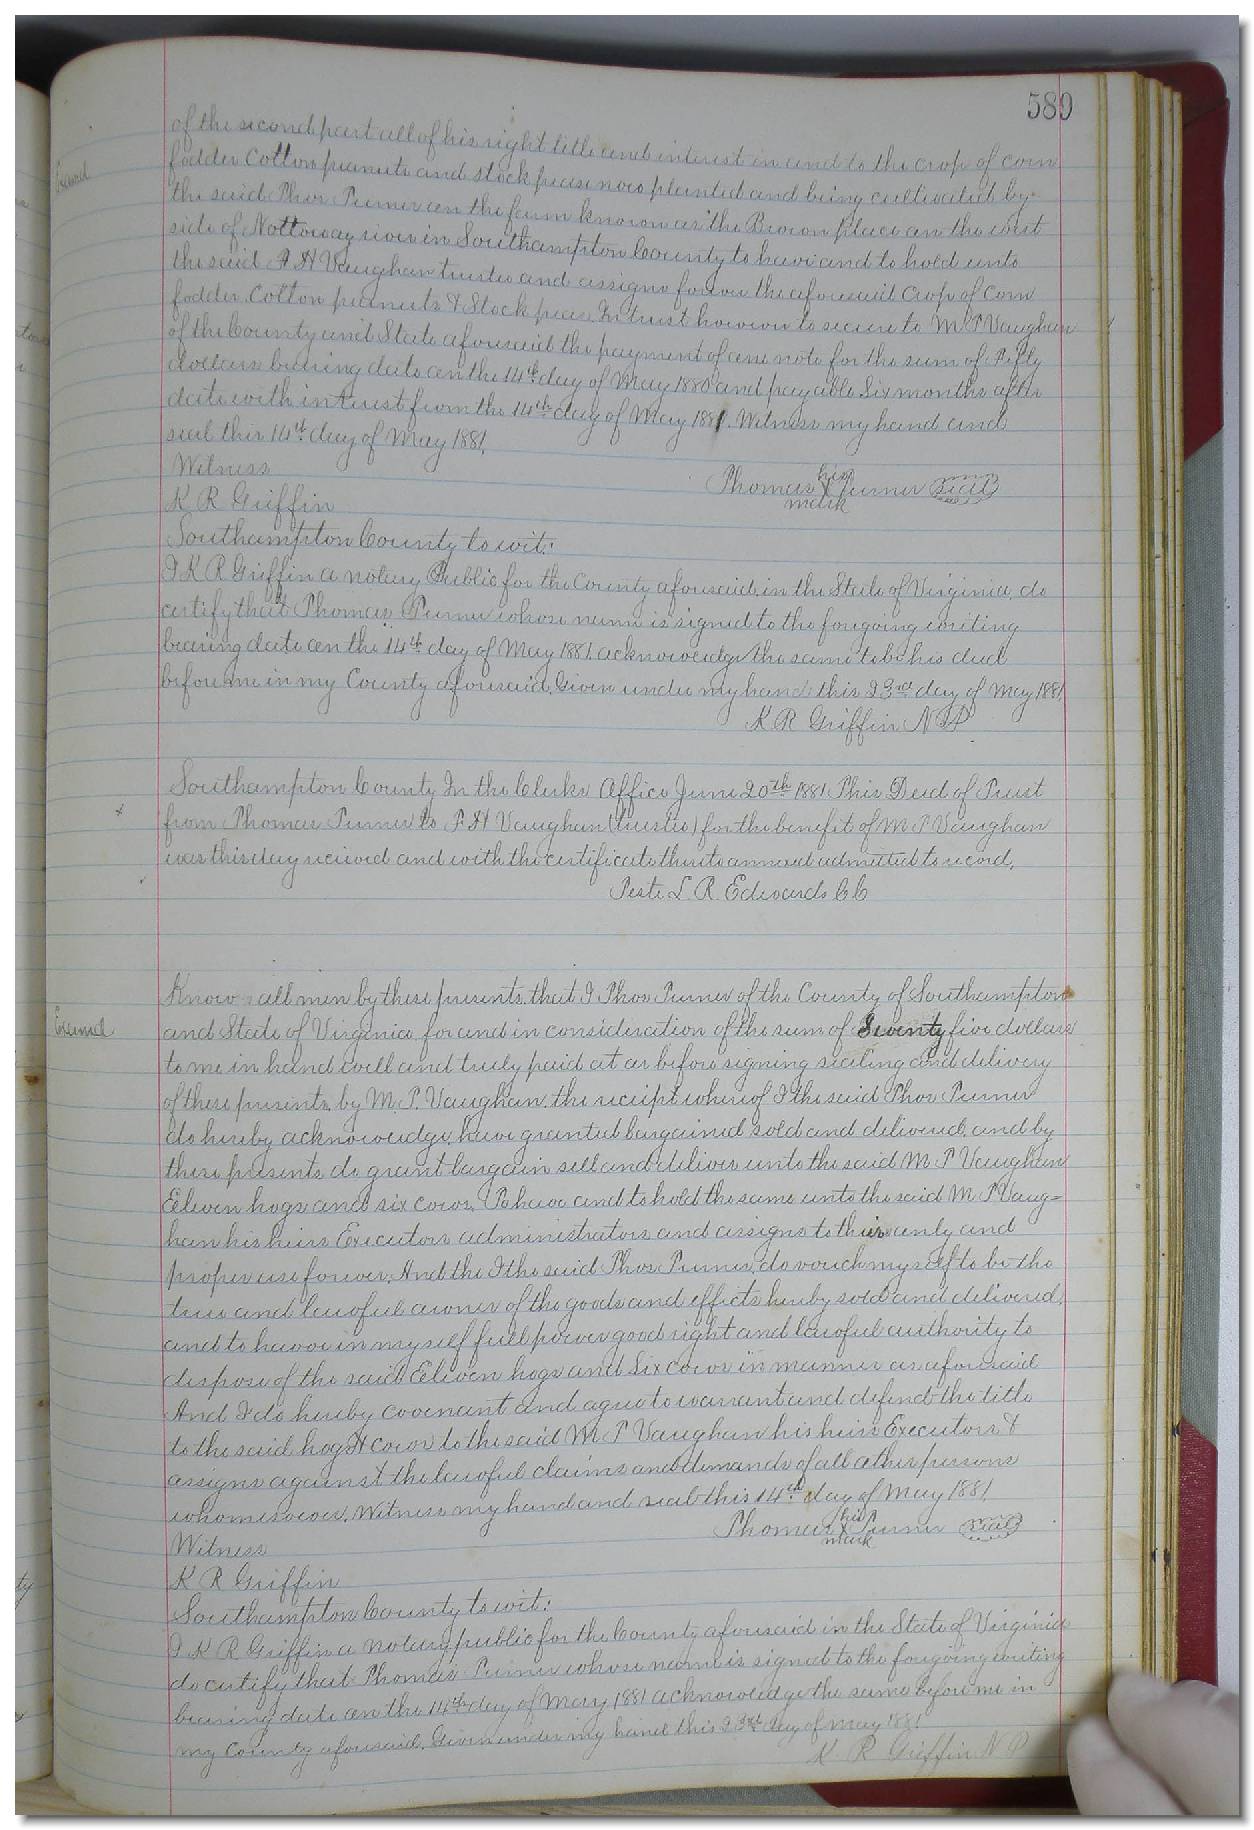 589
of the second part all of his right title and interest in and to the crop of corn
fodder Cotton peanuts and stock peas now planted and being cultivated by
the said Thos Turner on the farm known as the place on the west
side of Nottoway river in Southampton County to have and to hold unto
the said P H Vaughan trustee and assigns forever the aforesaid crop of Corn
fodder, Cotton peanuts & Stock peas. In trust however to secure to M P Vaughan
of the County and State aforesaid the payment of one note for the sum of Fifty
dollars bearing date on the 14th day of May 1880 and payable Six months after
date with interest from the 14th day of May 1881. Witness my hand and
seal this 14th day of May 1881.
Witness
Thomas his X mark Turner seal
K R Griffin
Southampton County to wit:
I K R Griffin a notary Public for the County aforesaid, in the State of Virginia, do
certify that Thomas Turner whose name is signed to the foregoing writing
bearing date on the 14th day of May 1881 acknowledge the same to be his deed
before me in my County aforesaid, Given under my hand this 23rd day of May 1881.
K R Griffin N P
Southampton County In the Clerks Office June 20th 1881. This Deed of Trust
from Thomas Turner to P H Vaughan (trustee) for the benefit of M P Vaughan
was this day recieved and with the certificate thereto annexed admitted to record.
Teste L. R. Edwards CC
Examd
Know all men by these presents, that I Thos Turner of the County of Southampton
and State of Virginia for and in consideration of the sum of Seventy five dollars
to me in hand well and truly paid at or before signing sealing and delivery
of these presents, by M. P. Vaughan, the receipt whereof I the said Thos Turner
do hereby acknowledge, have granted bargained sold and delivered, and by
these presents do grant bargain sell and deliver unto the said M P Vaughan
Eleven hogs and six cows, To have and to hold the same unto the said M P Vaug=
han his heirs Executors administrators and assigns to their only and
proper use forever. And the I the said Thos Turner, do vouch myself to be the
true and lawful owner of the goods and effects hereby sold and delivered,
and to have in myself full power good right and lawful authority to
dispose of the said Eleven hogs and Six cows in manner as aforesaid
And I do hereby covenant and agree to warrant and defend the title
to the said hogs & cows to the said M P Vaughan his heirs Executors &
assigns against the lawful claims and demands of all other persons
whomsoever. Witness my hand and seal this 14th day of May 1881.
Thomas his X mark Turner seal
Witness
K R Griffin
Southampton County to wit:
I K R Griffin a Notary public for the County aforesaid in the State of Virginia
do certify that Thomas Turner whose name is signed to the foregoing writing
bearing date on the 14th day of May 1881 acknowledge the same before me in
my County aforesaid. Given under my hand this 23rd day of May 1881
K. R Griffin N P